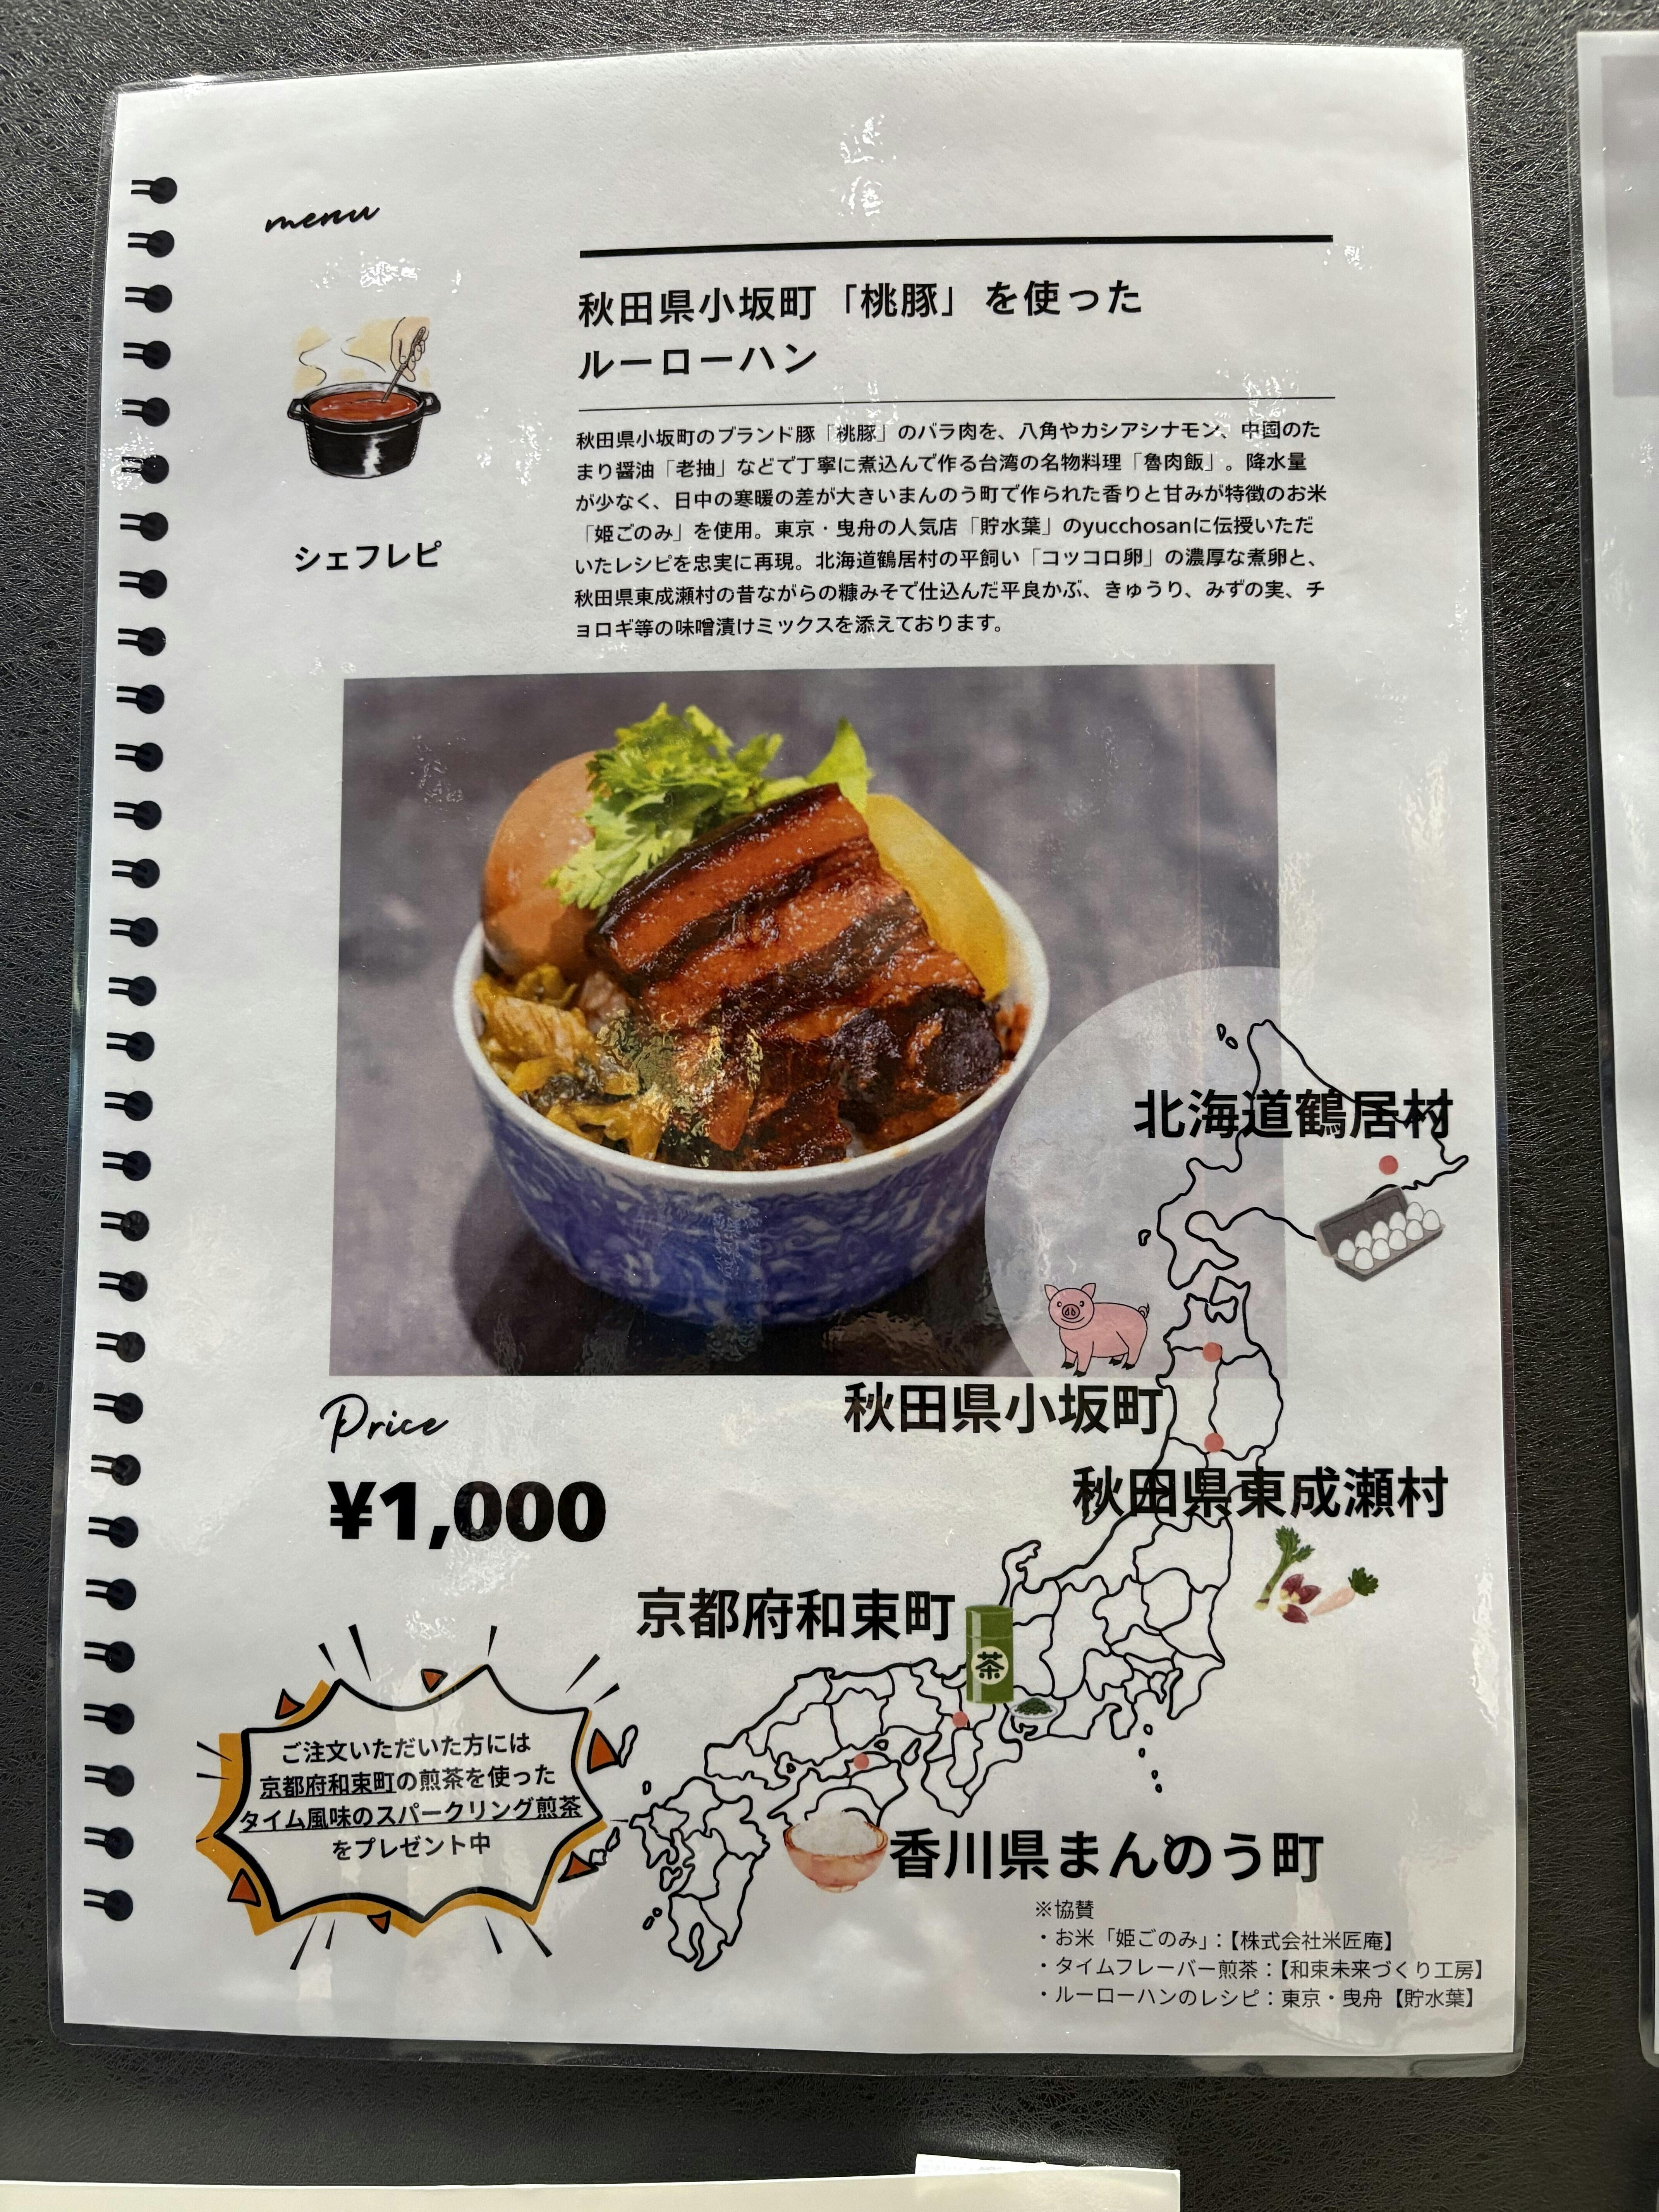 menu
秋田県小坂町「桃豚」を使った
ルーローハン
秋田県小坂町のブランド豚「桃豚」のバラ肉を、八角やカシアシナモン、中国のた
まり醤油「老抽」などで丁寧に煮込んで作る台湾の名物料理「魯肉飯」。降水量
が少なく、日中の寒暖の差が大きいまんのう町で作られた香りと甘みが特徴のお米
「姫ごのみ」を使用。東京・曳舟の人気店「貯水葉」のyucchosanに伝授いただ
いたレシピを忠実に再現。北海道鶴居村の平飼い「コッコロ卵」の濃厚な煮卵と、
秋田県東成瀬村の昔ながらの糠みそで仕込んだ平良かぶ、きゅうり、みずの実、チ
ョロギ等の味噌漬けミックスを添えております。
シェフレピ
北海道鶴居村
秋田県小坂町
秋田県東成瀬村
Price
¥1,000
京都府和束町
茶
ご注文いただいた方には
京都府和束町の煎茶を使った
タイム風味のスパークリング煎茶
をプレゼント中
香川県まんのう町
※協賛
・お米「姫ごのみ」:【株式会社米匠庵】
・タイムフレーバー煎茶:【和束未来づくり工房】
・ルーローハンのレシピ:東京・曳舟【貯水葉】